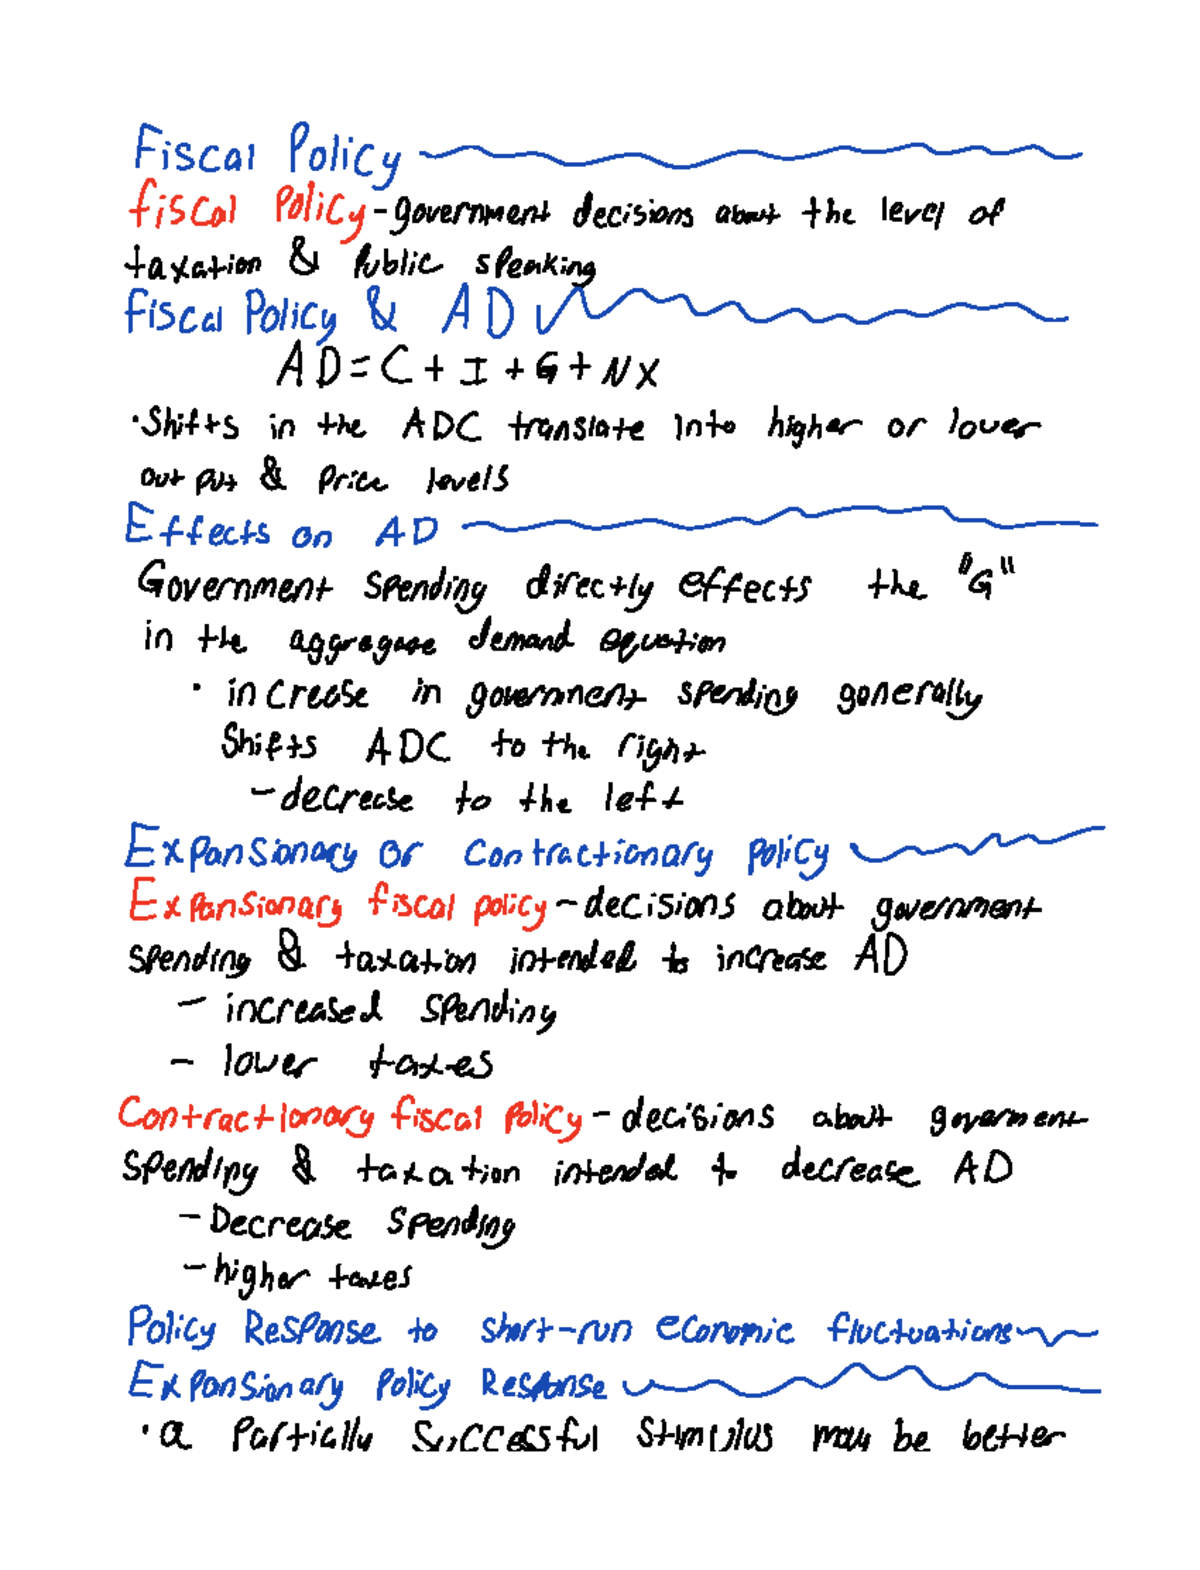 Fiscal Policy
fiscal policy - government decisions about the level of
taxation & Public speaking
fiscal Policy & AD
AD = C + I + G + NX
• Shifts in the ADC translate into higher or lower
output & Price levels
Effects on AD
Government spending directly effects the "G"
in the aggregate demand equation
• increase in government spending generally
Shifts ADC to the right
- decrease to the left
Expansionary or Contractionary policy
Expansionary fiscal policy - decisions about government
spending & taxation intended to increase AD
- increased spending
- lower taxes
Contractionary fiscal policy - decisions about goverment
spending & taxation intended to decrease AD
- Decrease spending
- higher taxes
Policy Response to short-run economic fluctuations
Expansionary Policy Response
• a Partially Successful Stimulus may be better